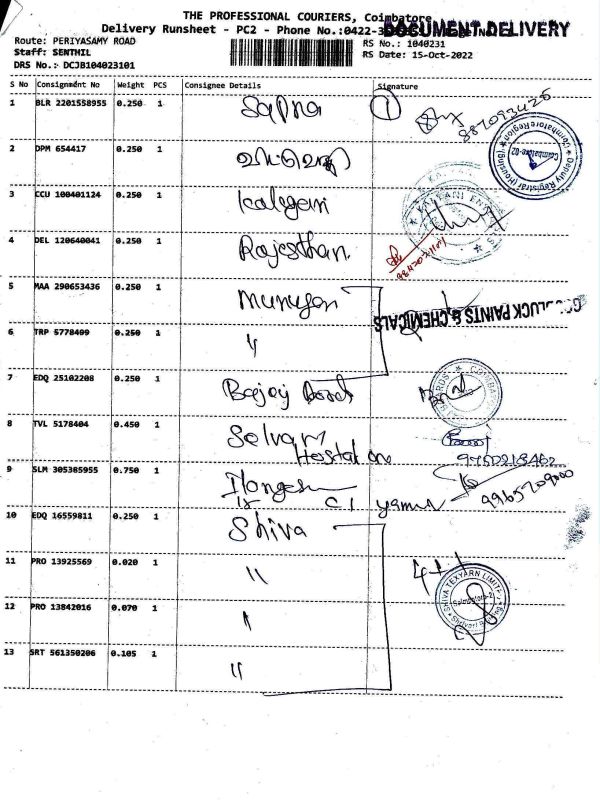 THE PROFESSIONAL COURIERS, Coimbatore
DOCUMENT DELIVERY
Delivery Runsheet - PC2 - Phone No.:0422-
Route: PERIYASAMY ROAD
RS No.: 1040231
Staff: SENTHIL
RS Date: 15-Oct-2022
DRS No.: DCJB104023101
S No Consignment No Weight PCS Consignee Details Signature
1 BLR 2201558955 0.250 1 Sapna 1
2 DPM 654417 0.250 1
Deputy Registrar (Housing)
Coimbatore-02
Coimbatore Region
3 CCU 100401124 0.250 1 Kalyani
KALYANI
4 DEL 120640041 0.250 1 Rajesthan
5 MAA 290653436 0.250 1 Murugan
GOODLUCK PAINTS & CHEMICALS
6 TRP 5778409 0.250 1 "
7 EDQ 25102208 0.250 1 Bajaj
8 TVL 5178404 0.450 1 Selvam
Hostel
9750218462
9 SLM 305385955 0.750 1
10 EDQ 16559811 0.250 1 Shiva
11 PRO 13925569 0.020 1 "
SHIVA TEXYARN LIMITED
Coimbatore
12 PRO 13842016 0.070 1 "
13 SRT 561350206 0.105 1 "